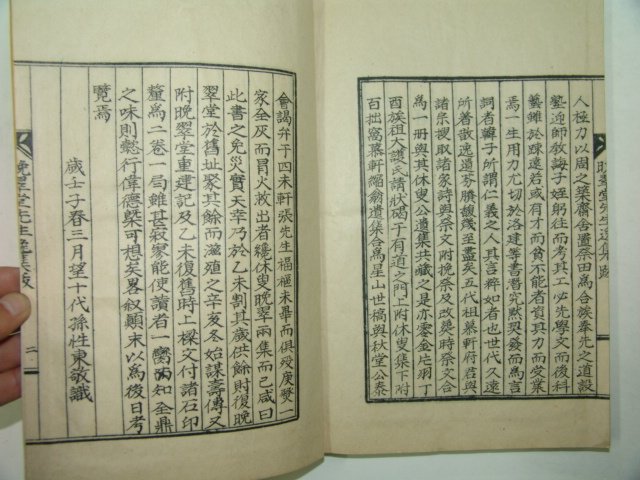 人極力以周之築齋舍置祭田爲合族奉先之道設
塾迎師教誨子姪躬往而考其工必先學文而後科
藝雖於疎遠若或有才而貧不能者資其力而受業
焉一生用力尤切於洛建等書潛究默契發而爲言
詞者韓子所謂仁義之人其言粹如者也世代久遠
所著散逸遺芬賸馥幾至盡矣五代祖慕軒府君與
諸宗搜取諸家詩與祭文附挽祭及改葬時祭文合
爲一冊與其休叟公遺集共藏之是亦零金片羽丁
酉族祖大護氏請狀碣于有道之門上附休叟集下附
百拙窩慕軒縮翁遺集合爲星山世稿與秋堂公泰
會謁弁于四未軒張先生福樞未畢而俱歿庚燹一
家全灰而冒火救出者纔休叟晩翠兩集而已咸曰
此書之免災實天幸乃於乙未割其歲供餘財復晩
翠堂於舊址聚其餘而滋殖之辛亥冬始謀壽傳又
附晩翠堂重建記及乙未復舊時上樑文付諸石印
釐爲二卷一局雖甚寂寥能使讀者一臠而如全鼎
之味則懿行偉德槩可想矣畧叙顚末以爲後日考
覽焉
歲壬子春三月望十代孫性東敬識
晩翠堂先生逸集跋
二